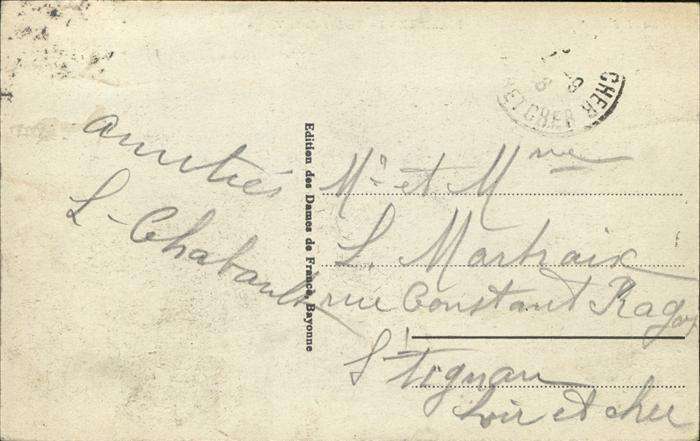 amitiés
L. Chabault
Edition des Dames de France, Bayonne
CHER
ET CHER
Mr et Mme
L. Martraix
rue Constant Ragot
St Aignan
Loir et cher